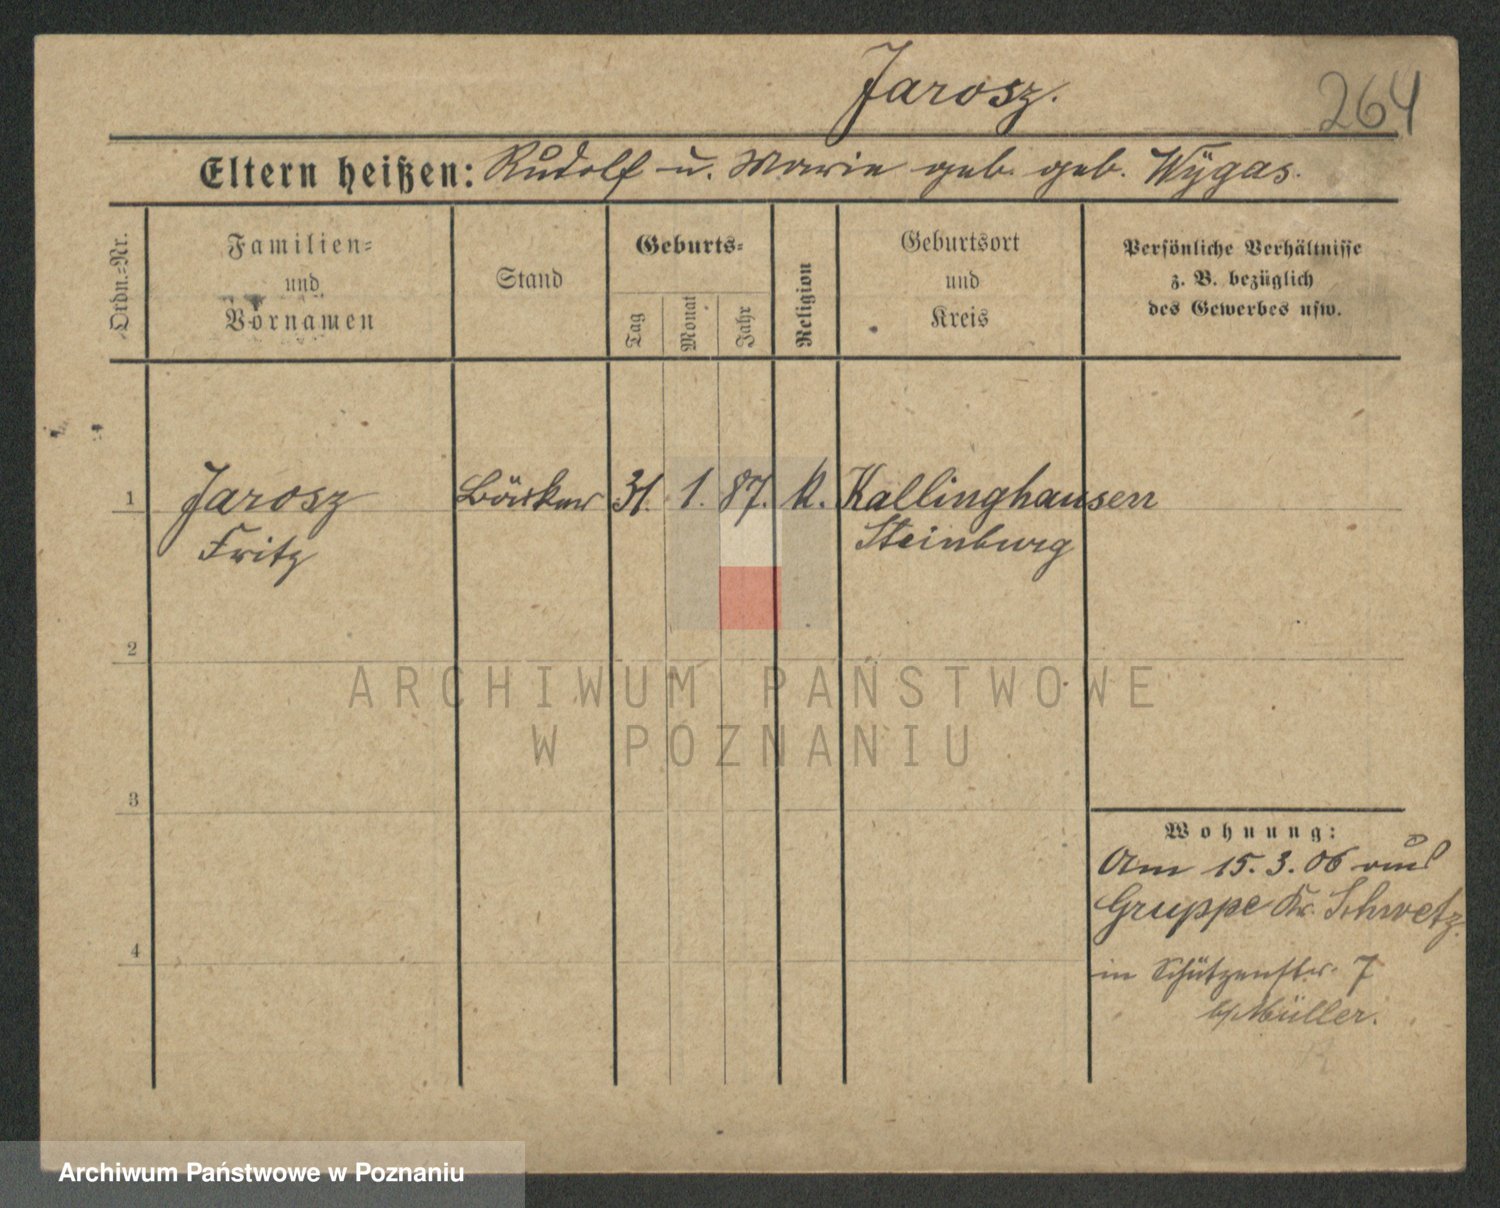 Jarosz.
264
Eltern heißen: Rudolf u. Marie geb. geb. Wÿgas.
Ordn.=Nr.
Familien=
und
Vornamen
Stand
Geburts=
Tag
Monat
Jahr
Religion
Geburtsort
und
Kreis
Persönliche Verhältnisse
z. B. bezüglich
des Gewerbes usw.
1 Jarosz 31. 1. 87. K. Kallinghausen
Fritz Steinburg
2
ARCHIWUM PAŃSTWOWE
W POZNANIU
3
Wohnung:
Am 15.3.06 aus
Gruppe Kr. Schwetz.
4
in Schützenstr. 7
b/ Müller.
Archiwum Państwowe w Poznaniu